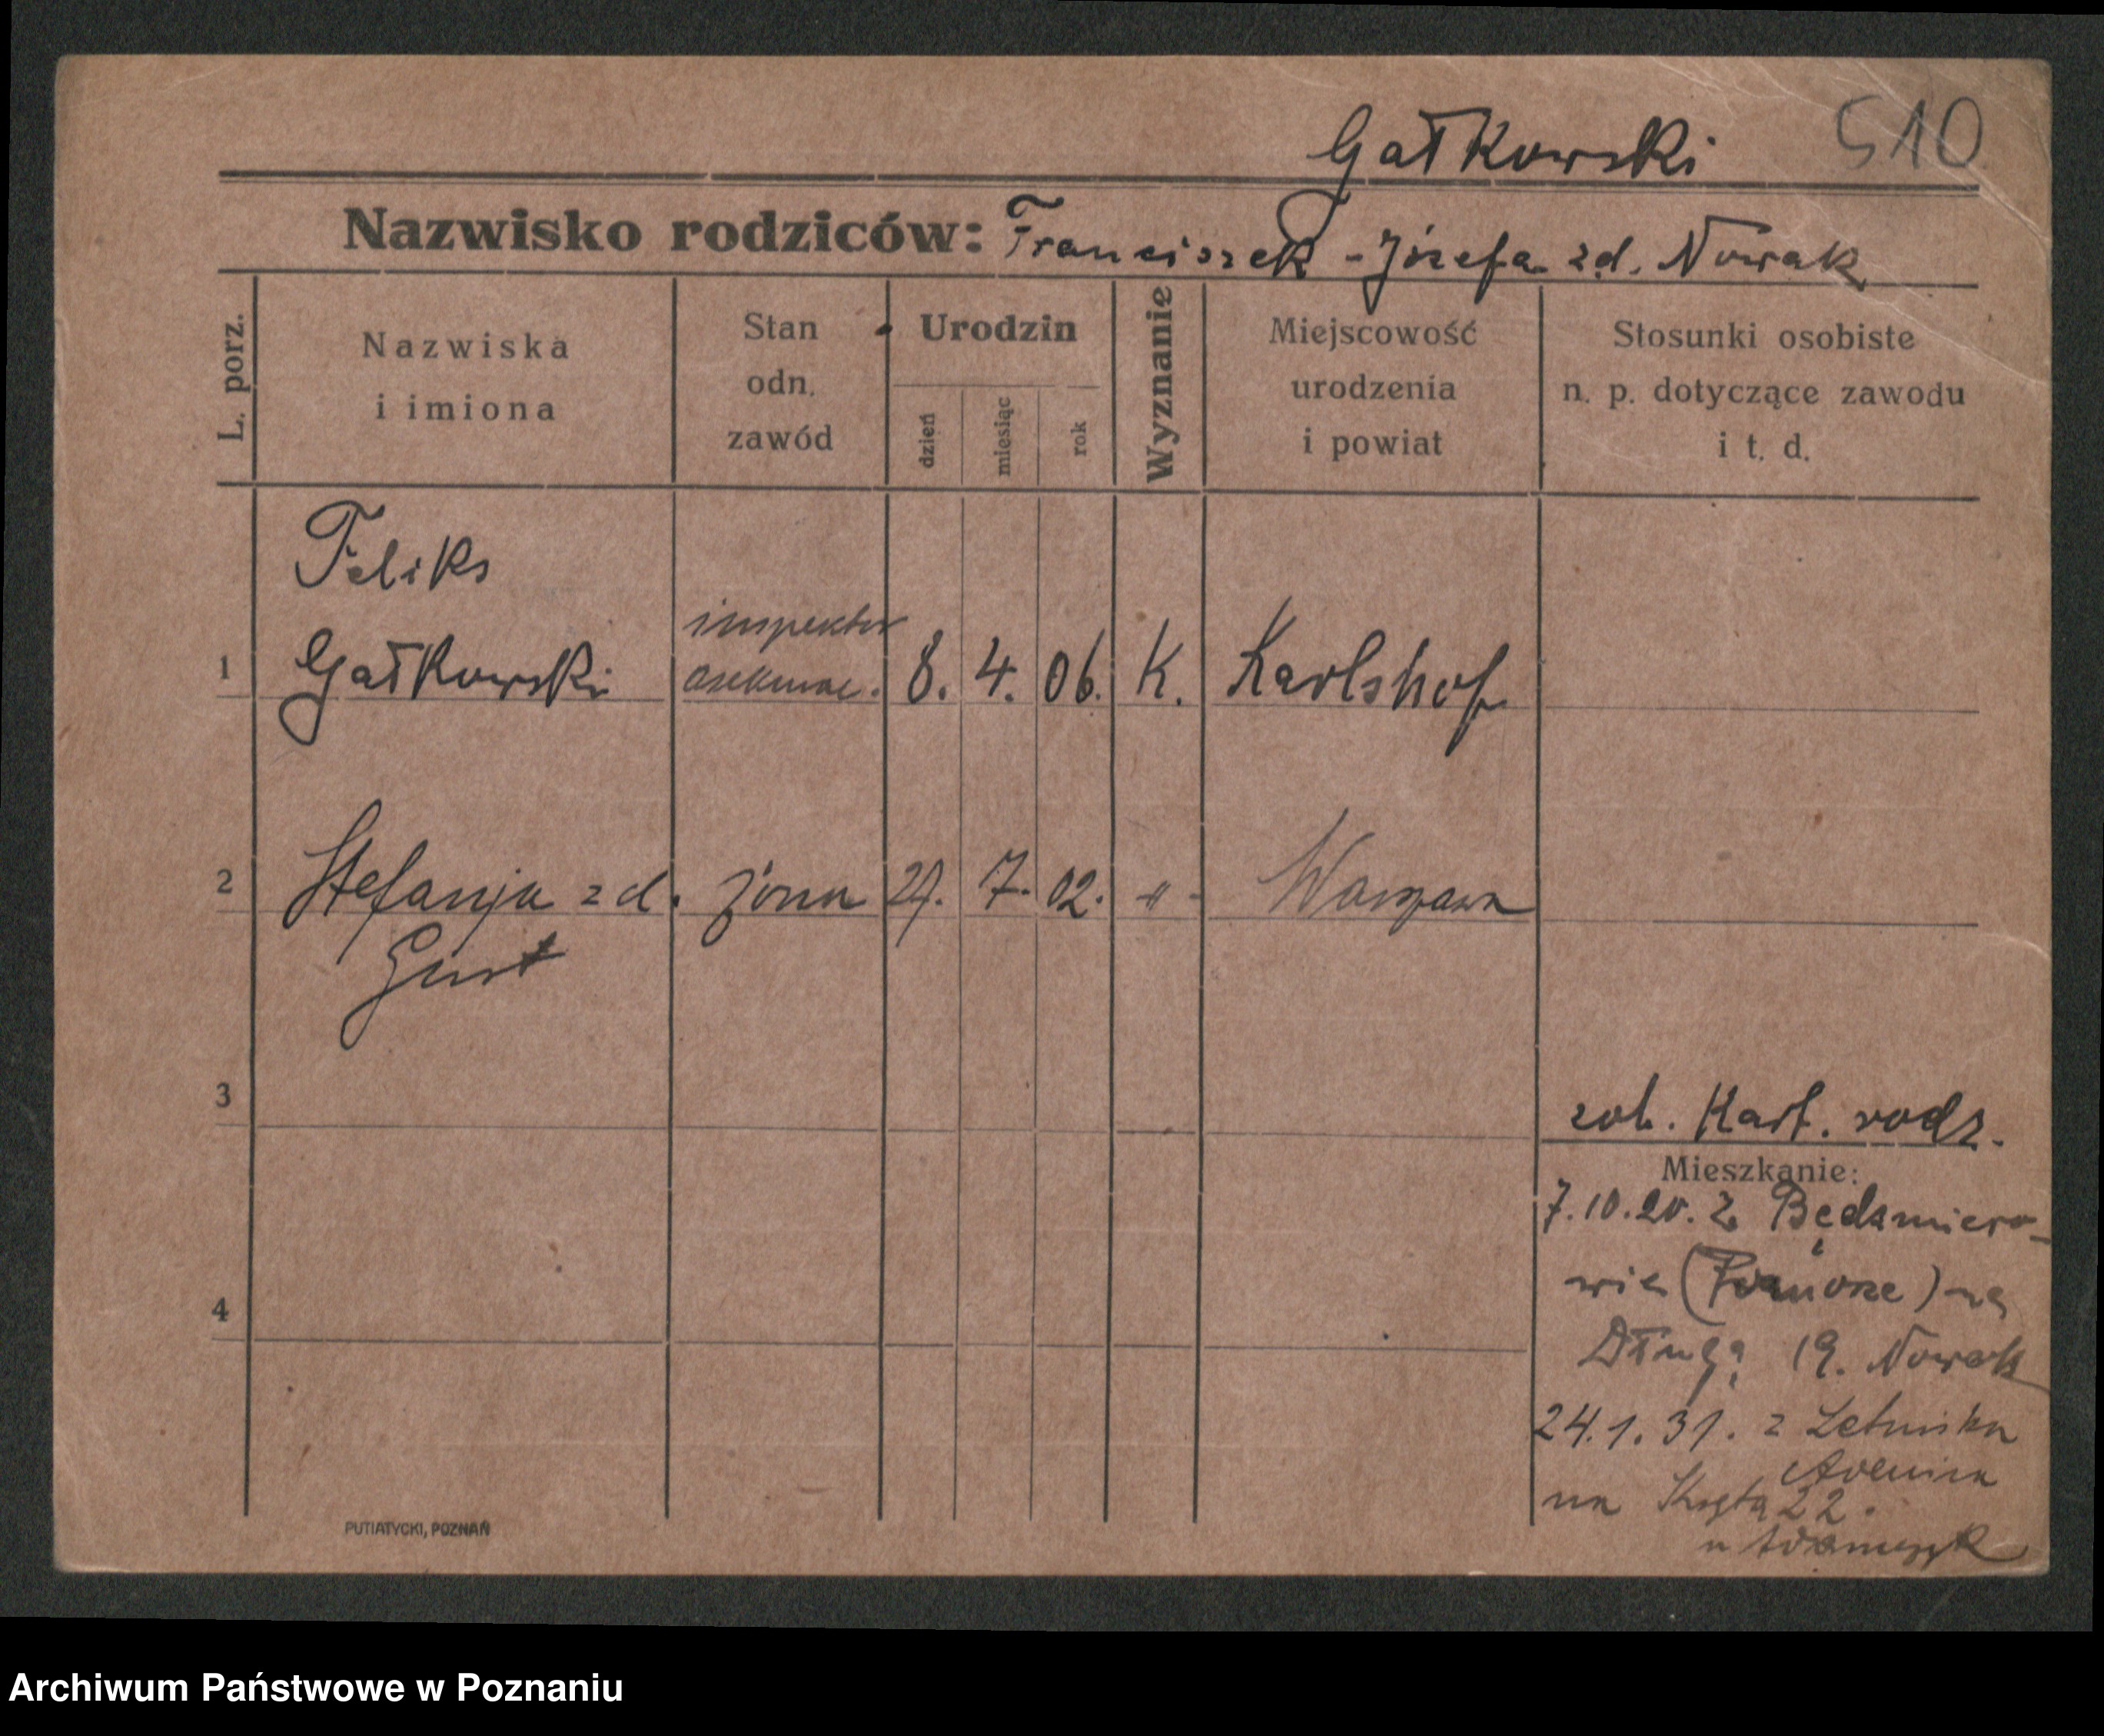 Gałkowski 510
Nazwisko rodziców: Franciszek - Józefa zd. Nowak
L. porz.
Nazwiska
i imiona
Stan
odn.
zawód
Urodzin
dzień
miesiąc
rok
Wyznanie
Miejscowość
urodzenia
i powiat
Stosunki osobiste
n. p. dotyczące zawodu
i t. d.
Feliks
1 Gałkowski inspektor asekurac. 8. 4. 06. K. Karlshof
2 Stefanja zd. żona 7. 02. -"- Warszawa
Gust
3
zob. Kart. rodz.
Mieszkanie:
7.10.20. z Będamiero-
wie (Pomorze) na
4
Długą 19. Nowak
24.1.31. z Letniska
na Krętą 22.
u Adamczyk
PUTIATYCKI, POZNAŃ
Archiwum Państwowe w Poznaniu